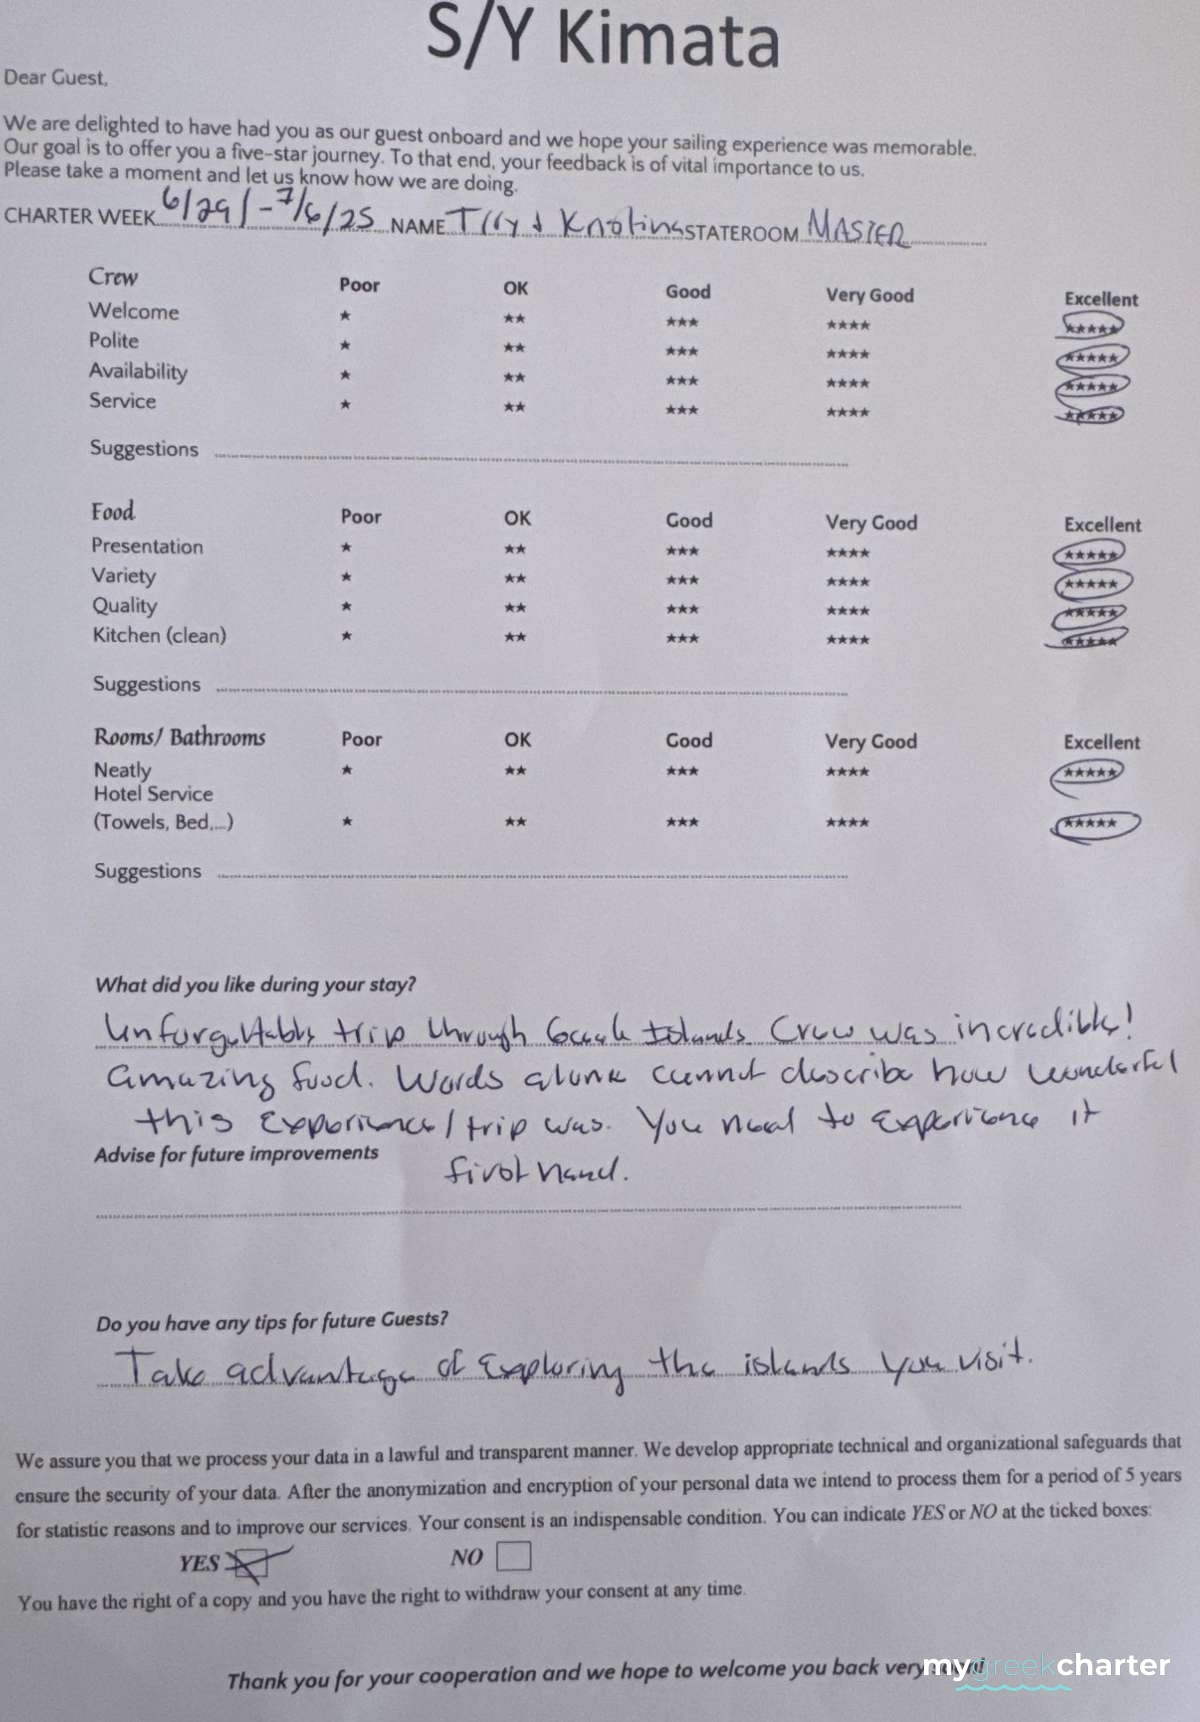 S/Y Kimata
Dear Guest,
We are delighted to have had you as our guest onboard and we hope your sailing experience was memorable.
Our goal is to offer you a five-star journey. To that end, your feedback is of vital importance to us.
Please take a moment and let us know how we are doing.
CHARTER WEEK 6/29/-7/6/25 NAME STATEROOM MASTER
Crew Poor OK Good Very Good Excellent
Welcome ★ ★★ ★★★ ★★★★ ★★★★★
Polite ★ ★★ ★★★ ★★★★ ★★★★★
Availability ★ ★★ ★★★ ★★★★ ★★★★★
Service ★ ★★ ★★★ ★★★★ ★★★★★
Suggestions
Food Poor OK Good Very Good Excellent
Presentation ★ ★★ ★★★ ★★★★ ★★★★★
Variety ★ ★★ ★★★ ★★★★ ★★★★★
Quality ★ ★★ ★★★ ★★★★ ★★★★★
Kitchen (clean) ★ ★★ ★★★ ★★★★ ★★★★★
Suggestions
Rooms/ Bathrooms Poor OK Good Very Good Excellent
Neatly ★ ★★ ★★★ ★★★★ ★★★★★
Hotel Service
(Towels, Bed,...) ★ ★★ ★★★ ★★★★ ★★★★★
Suggestions
What did you like during your stay?
Unforgettable trip through Greek Islands Crew was incredible!
amazing food. Words alone cannot describe how wonderful
this experience/trip was. You need to experience it
Advise for future improvements
first hand.
Do you have any tips for future Guests?
Take advantage of exploring the islands you visit.
We assure you that we process your data in a lawful and transparent manner. We develop appropriate technical and organizational safeguards that
ensure the security of your data. After the anonymization and encryption of your personal data we intend to process them for a period of 5 years
for statistic reasons and to improve our services. Your consent is an indispensable condition. You can indicate YES or NO at the ticked boxes:
YES NO
You have the right of a copy and you have the right to withdraw your consent at any time.
Thank you for your cooperation and we hope to welcome you back very
mygreekcharter